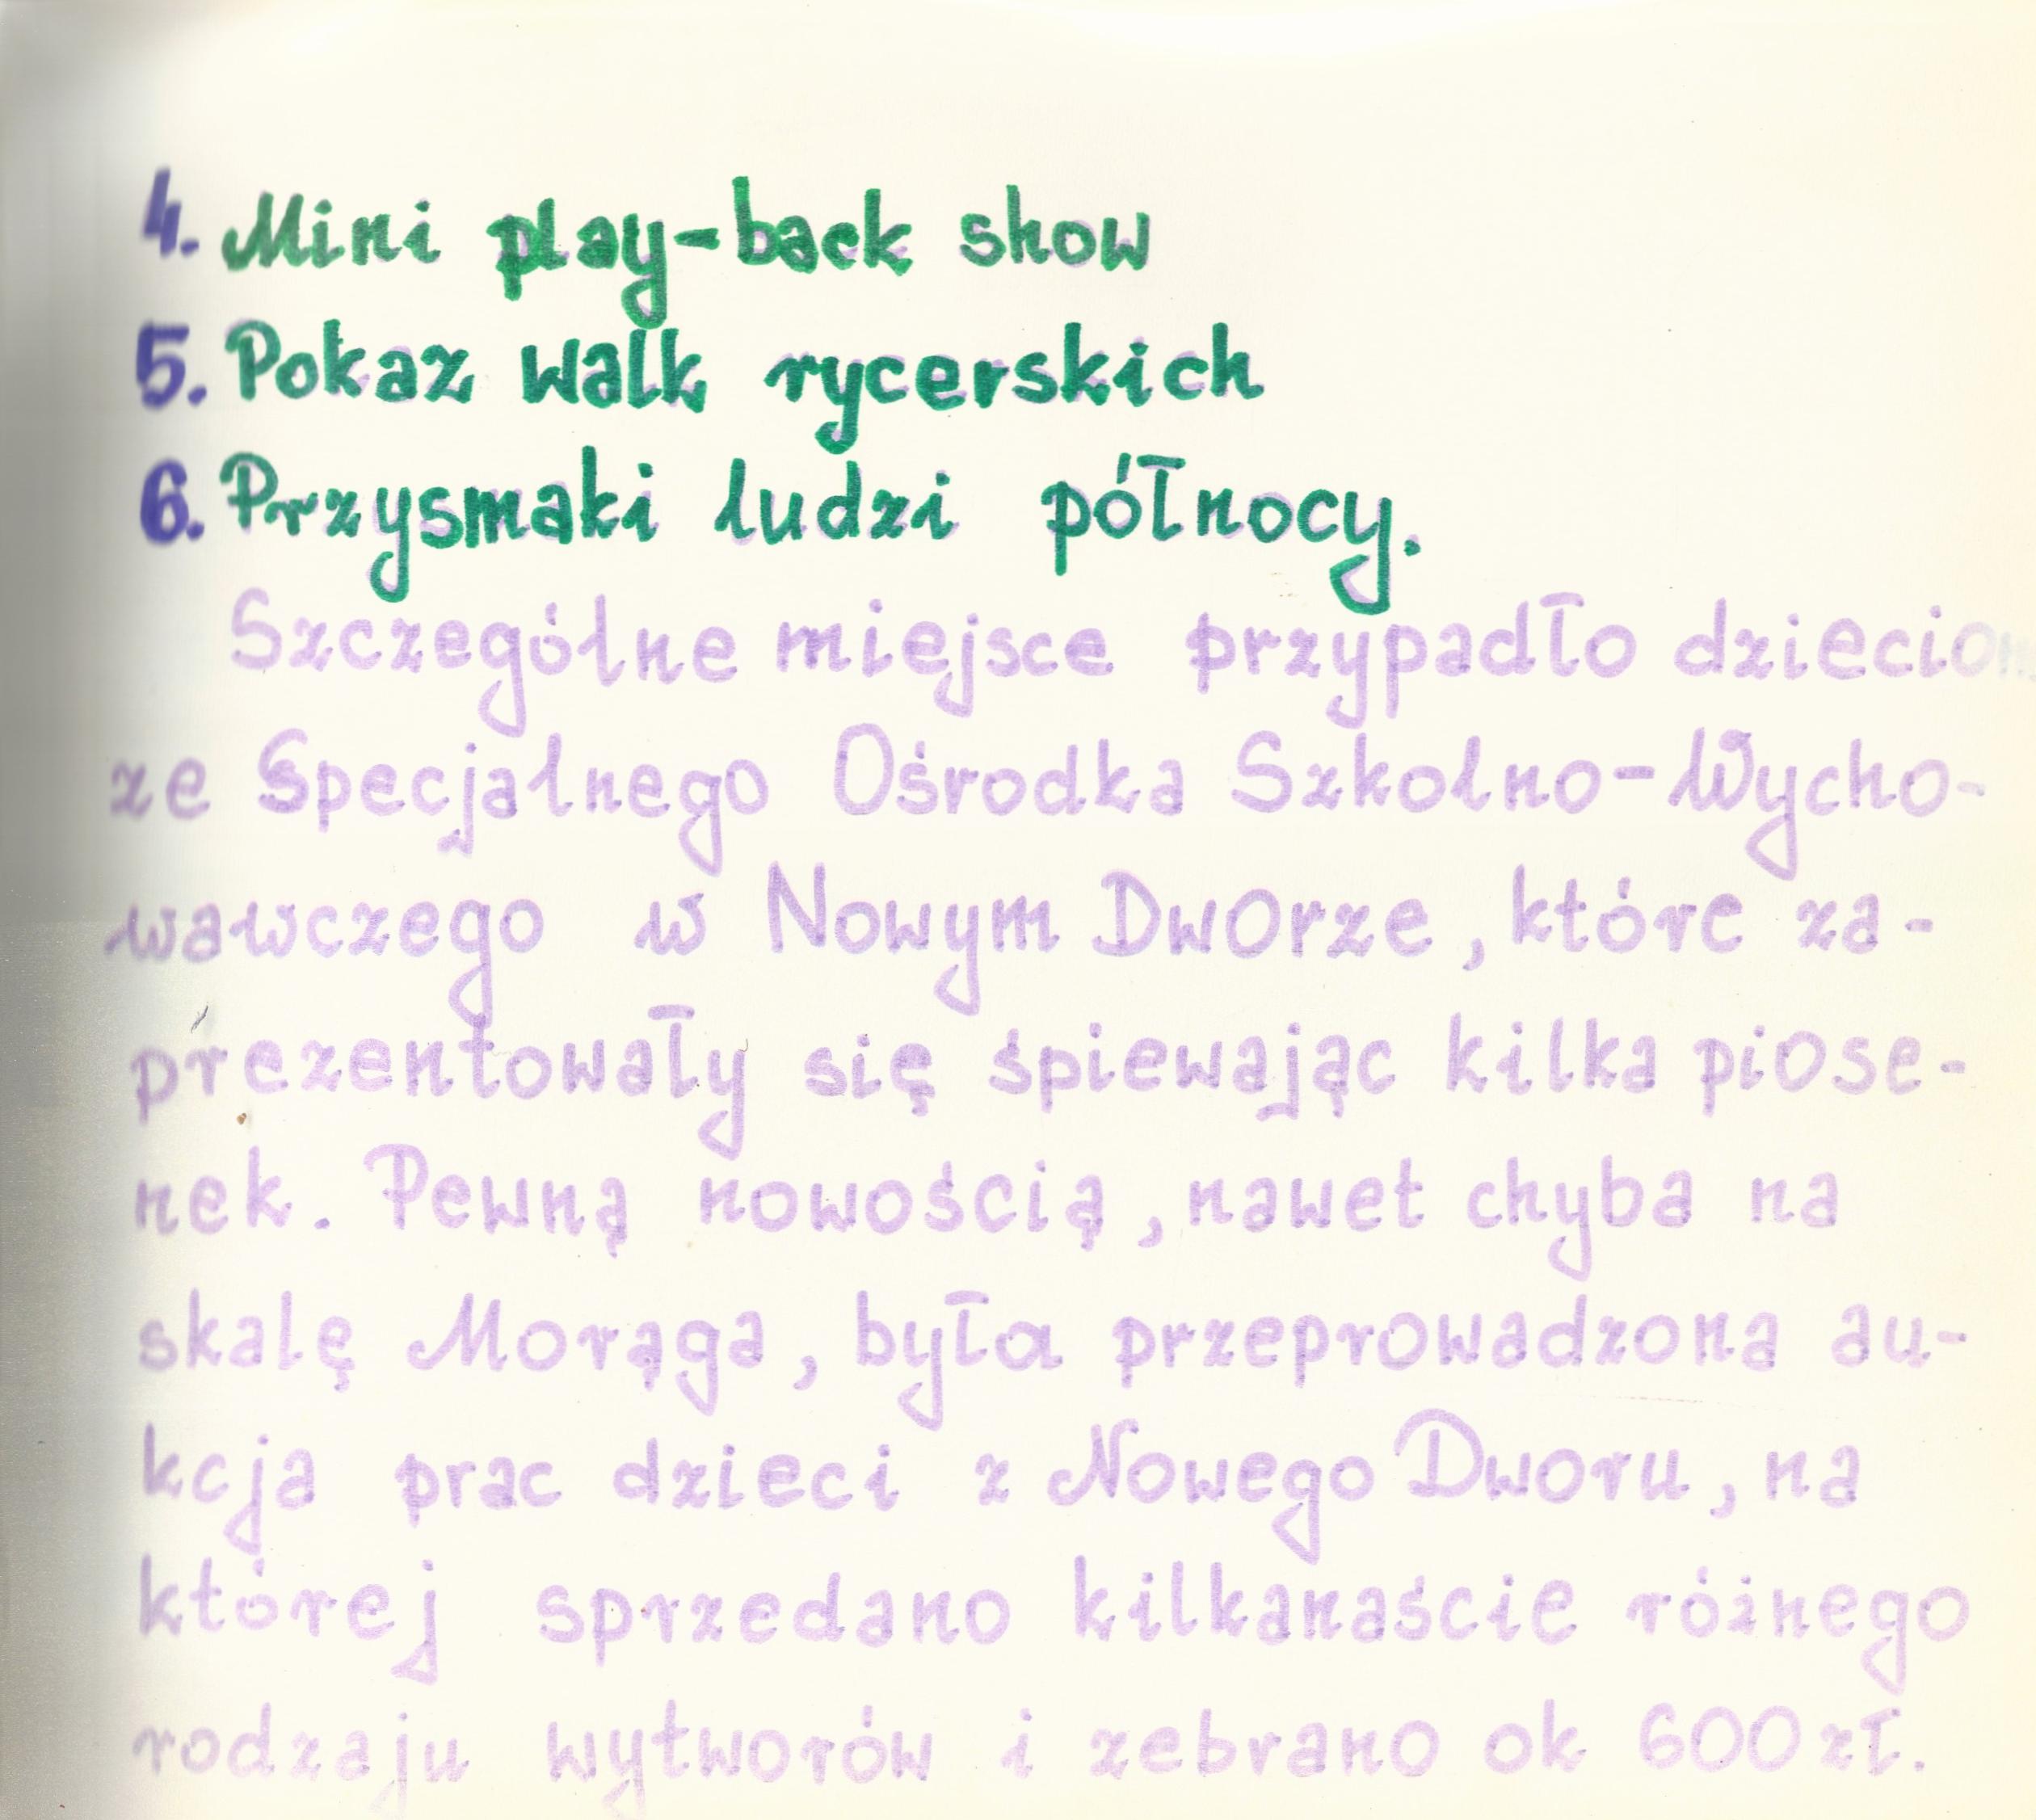 4. Mini play-back show
5. Pokaz walk rycerskich
6. Przysmaki ludzi północy.
Szczególne miejsce przypadło dzieciom
ze Specjalnego Ośrodka Szkolno-Wycho-
wawczego w Nowym Dworze, które za-
prezentowały się śpiewając kilka piose-
nek. Pewną nowością, nawet chyba na
skalę Morąga, była przeprowadzona au-
kcja prac dzieci z Nowego Dworu, na
której sprzedano kilkanaście różnego
rodzaju wytworów i zebrano ok 600 zł.